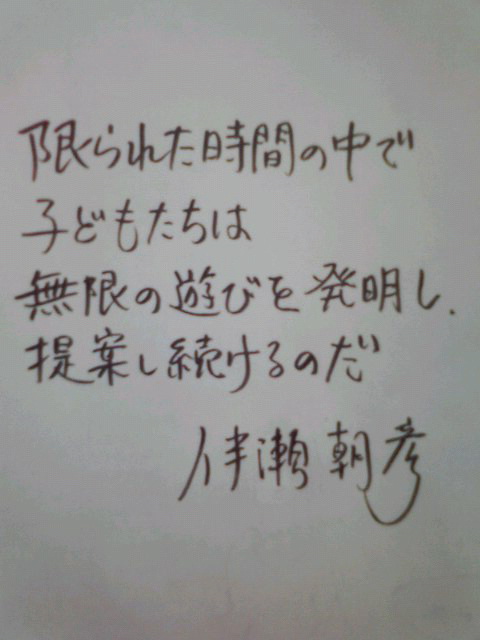 限られた時間の中で
子どもたちは
無限の遊びを発明し、
提案し続けるのだ
伴瀬朝彦